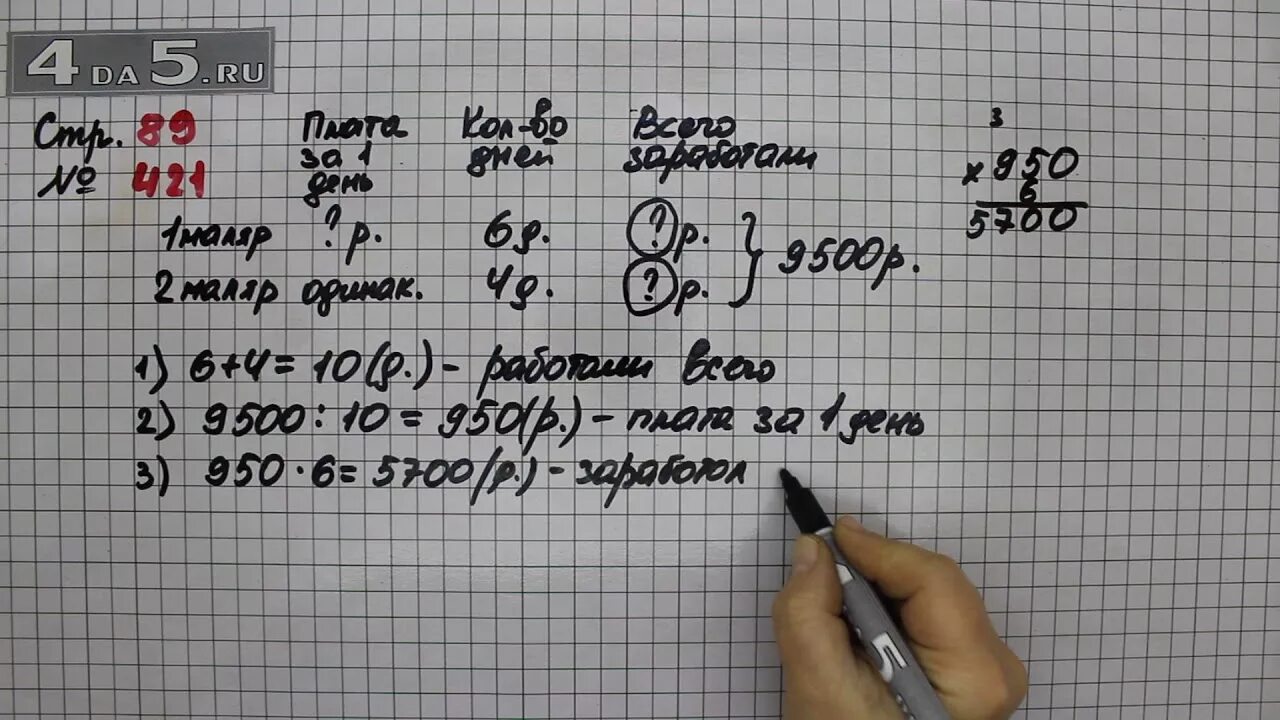 4DA5.RU
Стр. 89
№ 421
Плата за 1 день
Кол-во дней
Всего заработали
1 маляр ? р. 6 д. ? р.
2 маляр одинак. 4 д. ? р.
9500 р.
3
× 950
6
5700
1) 6+4=10(д.) - работали всего
2) 9500:10=950(р.) - плата за 1 день
3) 950·6=5700(р.) - заработал
5